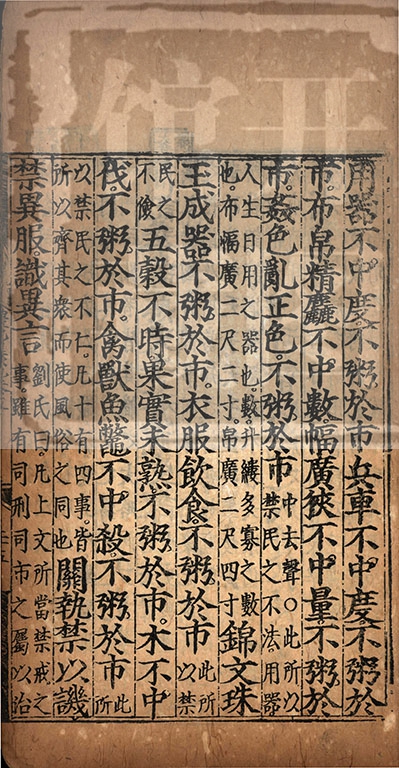 用器不中度。不粥於市。兵車不中度。不粥於
市。布帛精麤不中數幅廣狹不中量。不粥於
市。姦色亂正色。不粥於市中去聲○此所以禁民之不法。用器
人生日用之器也。數升縷多寡之數也。布幅廣二尺二寸。帛廣二尺四寸錦文珠
玉成器不粥於市。衣服飲食。不粥於市此所以禁
民之不儉五穀不時果實未熟。不粥於市。木不中
伐。不粥於市。禽獸魚鼈不中殺。不粥於市此所
以禁民之不仁。凡十有四事。皆所以齊其衆而使風俗之同也關執禁以譏
禁異服。識異言劉氏曰。凡上文所當禁戒之事。雖有司刑司市之屬以治